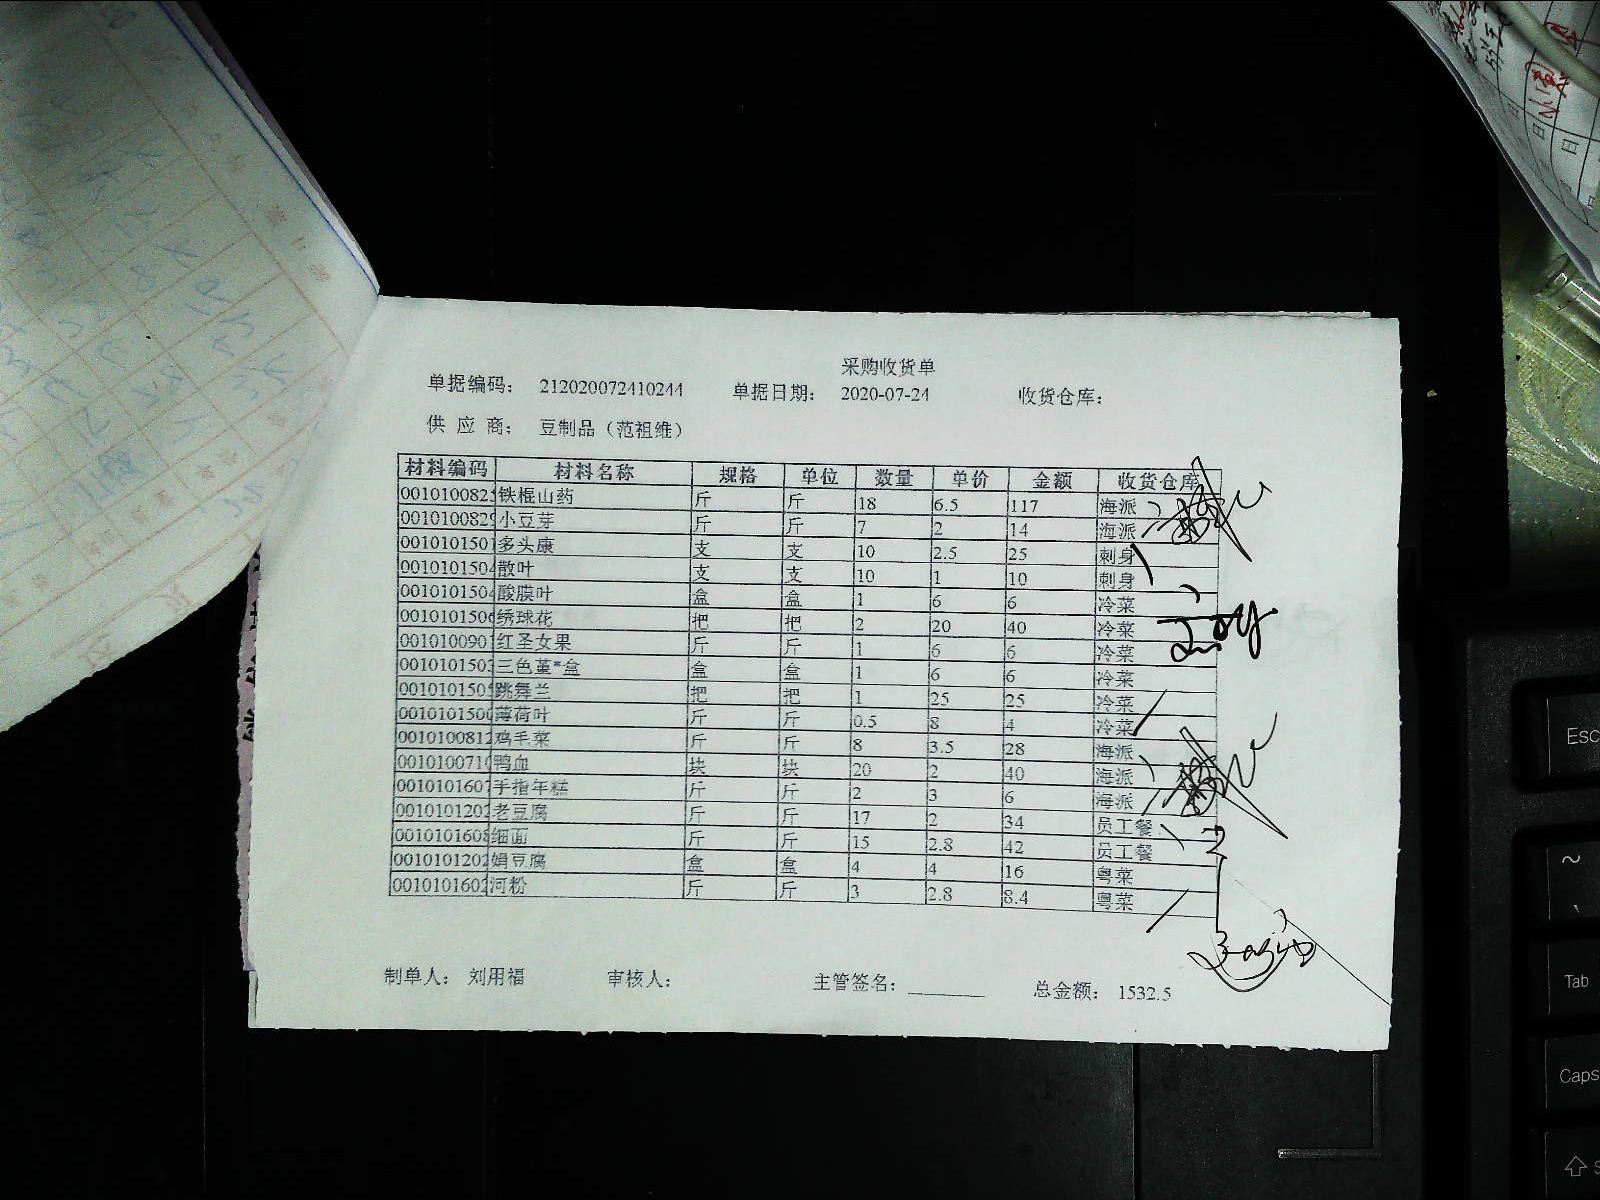 采购收货单
单据编码： 212020072410244 单据日期： 2020-07-24 收货仓库：
供 应 商： 豆制品（范祖维）
材料编码 材料名称 规格 单位 数量 单价 金额 收货仓库
001010082 铁棍山药 斤 斤 18 6.5 117 海派
001010082 小豆芽 斤 斤 7 2 14 海派
001010150 多头康 支 支 10 2.5 25 刺身
001010150 散叶 支 支 10 1 10 刺身
001010150 酸膜叶 盒 盒 1 6 6 冷菜
001010150 绣球花 把 把 2 20 40 冷菜
001010090 红圣女果 斤 斤 1 6 6 冷菜
001010150 三色堇*盒 盒 盒 1 6 6 冷菜
001010150 跳舞兰 把 把 1 25 25 冷菜
001010150 薄荷叶 斤 斤 0.5 8 4 冷菜
001010081 鸡毛菜 斤 斤 8 3.5 28 海派
001010071 鸭血 块 块 20 2 40 海派
001010160 手指年糕 斤 斤 2 3 6 海派
001010120 老豆腐 斤 斤 17 2 34 员工餐
001010160 细面 斤 斤 15 2.8 42 员工餐
001010120 绢豆腐 盒 盒 4 4 16 粤菜
001010160 河粉 斤 斤 3 2.8 8.4 粤菜
制单人： 刘用福 审核人： 主管签名： 总金额： 1532.5
Esc
Tab
Caps